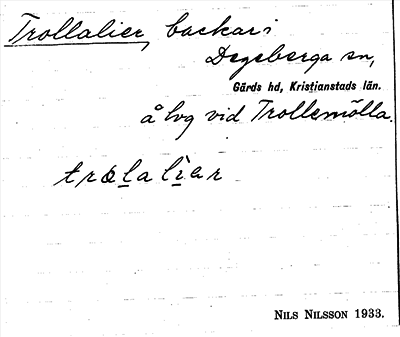 Trollalier, backar i
Degeberga sn,
Gärds hd, Kristianstads län.
å lvg vid Trollemölla.
trolaliar
NILS NILSSON 1933.